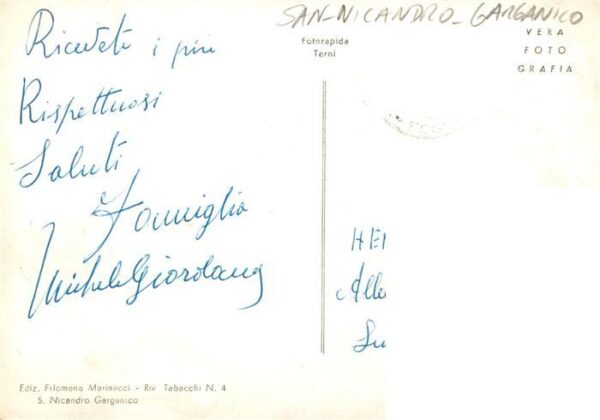 SAN-NICANDRO-GARGANICO
Fotorapida
Terni
VERA
FOTO
GRAFIA
Ricevete i più
Rispettuosi
Saluti
Famiglia
Michele Giordano
HE
Alle
Su
Ediz. Filomena Marinacci - Riv. Tabacchi N. 4
S. Nicandro Garganico